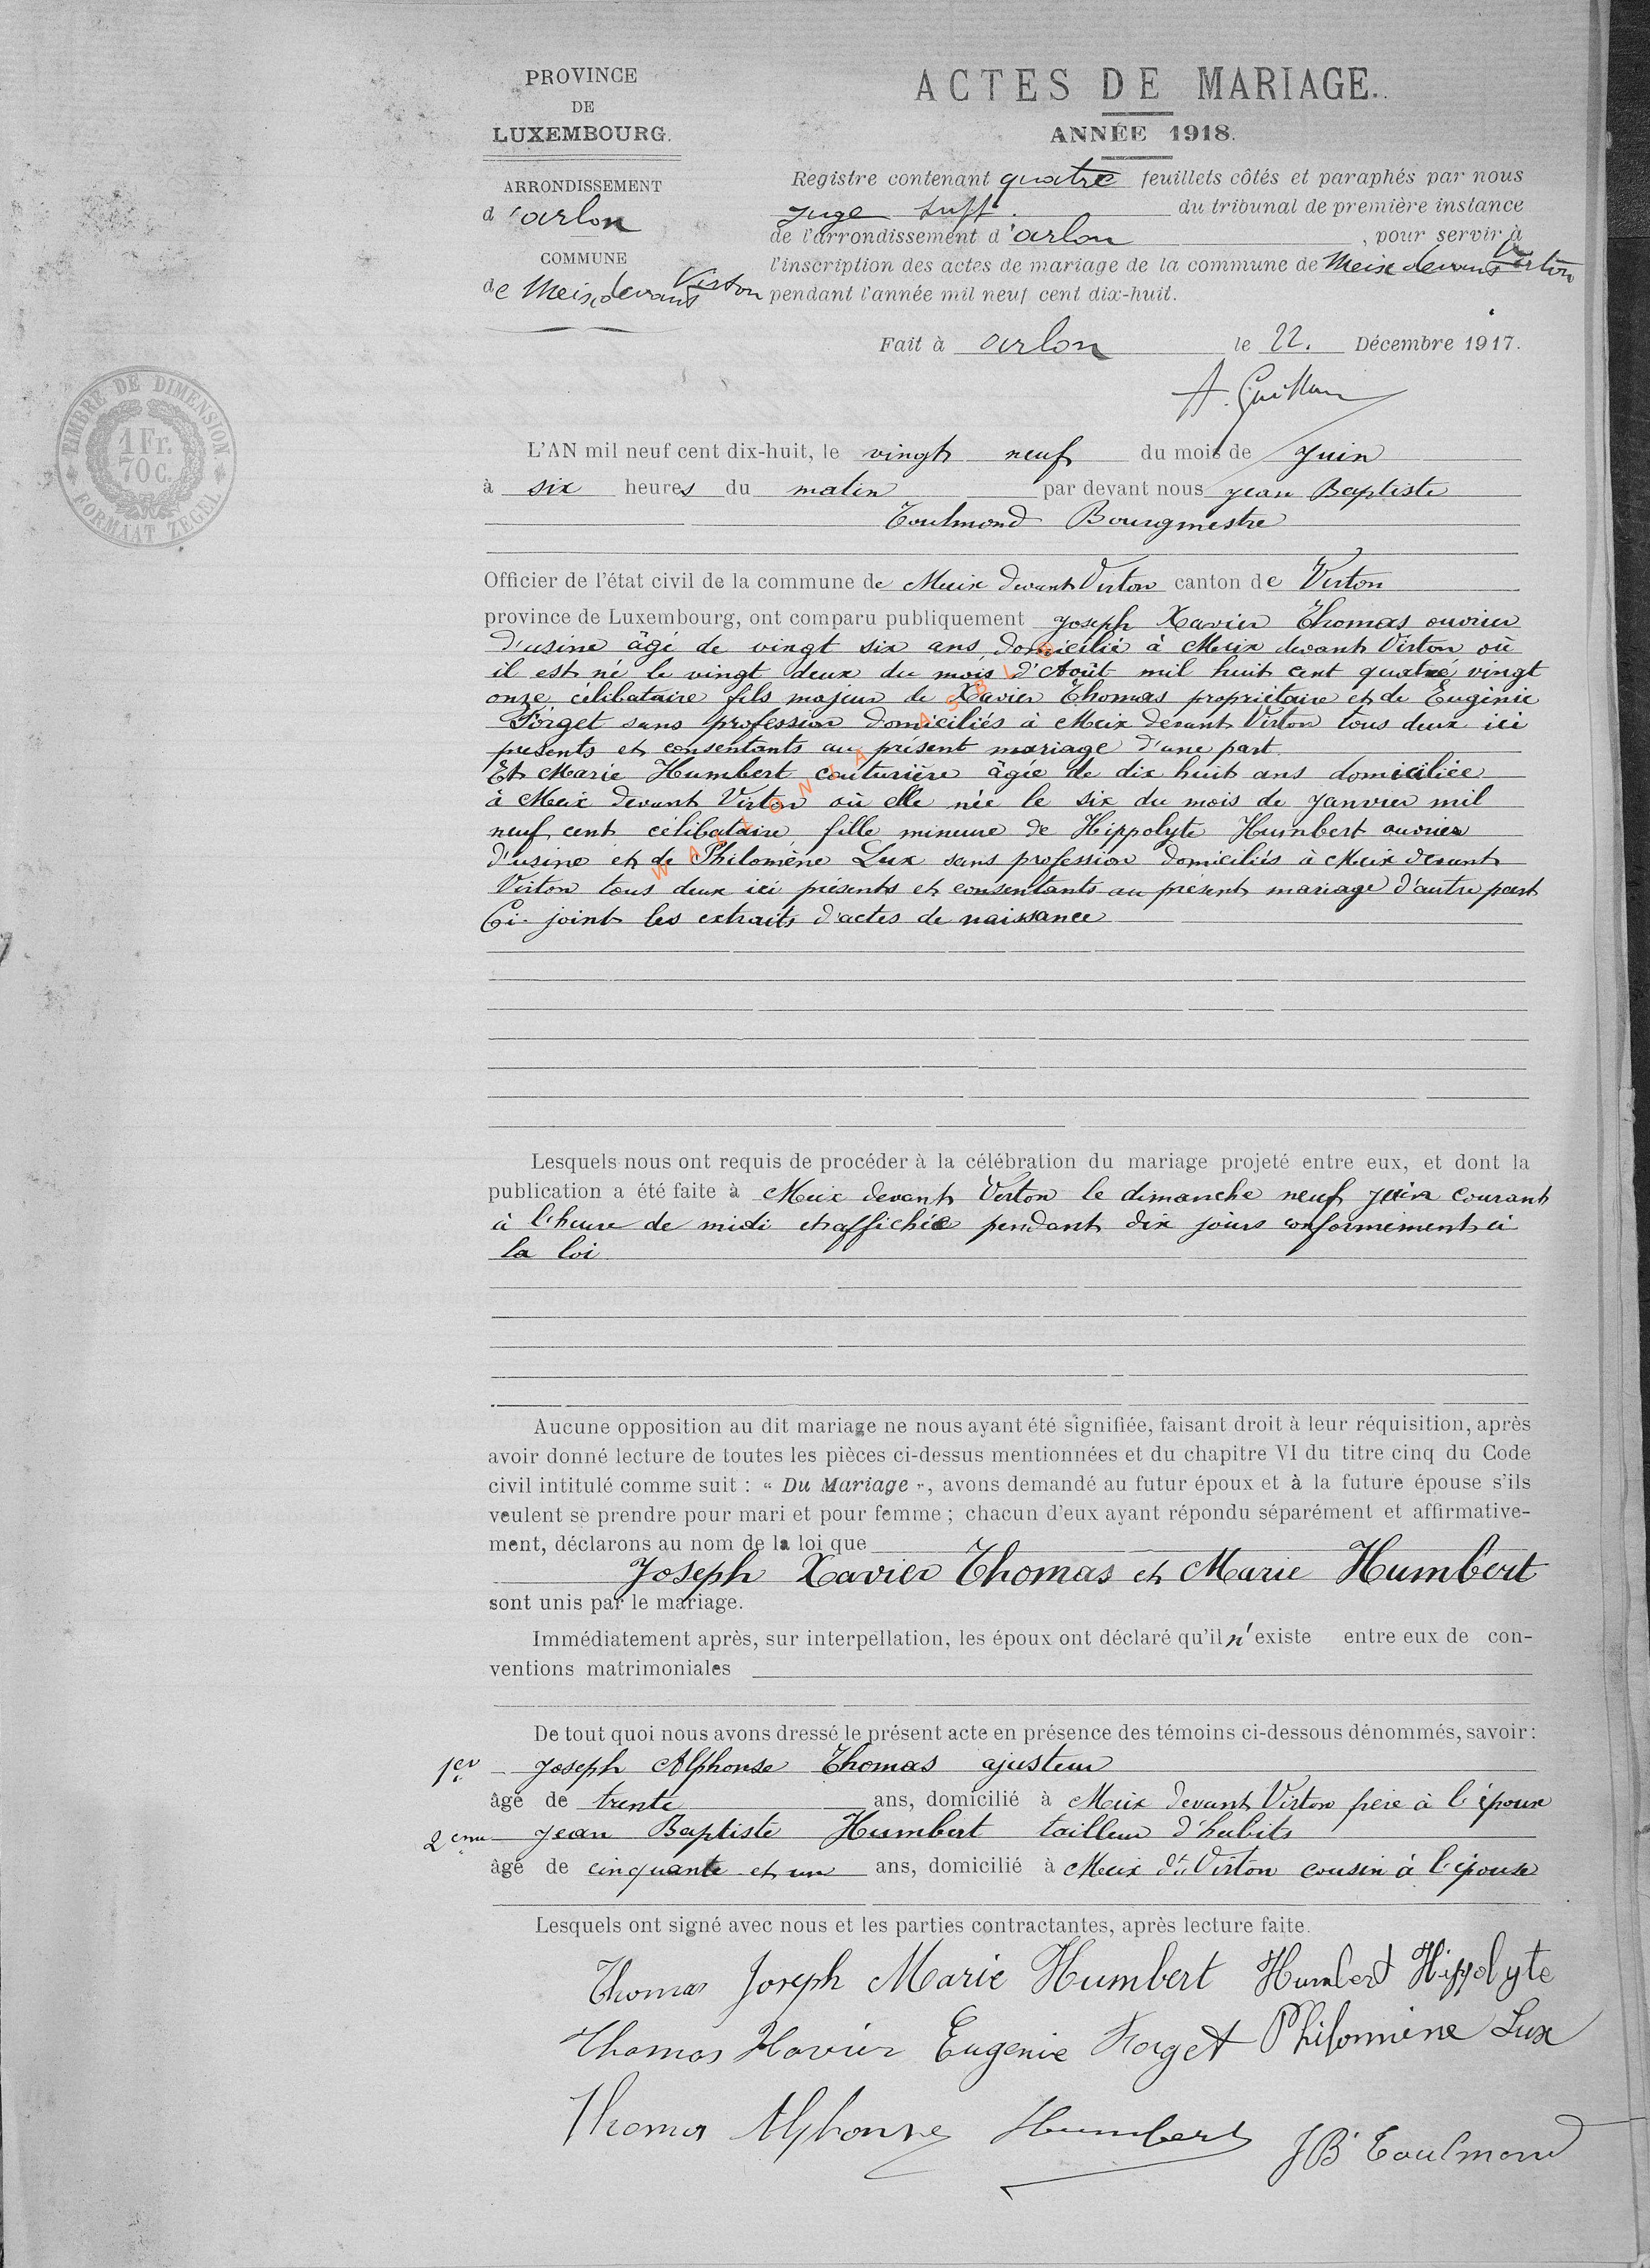 PROVINCE
DE
LUXEMBOURG.
ARRONDISSEMENT
d'arlon
COMMUNE
de Meix devant Virton
ACTES DE MARIAGE.
ANNÉE 1918.
Registre contenant quatre feuillets côtés et paraphés par nous
juge supp. du tribunal de première instance
de l'arrondissement d'arlon, pour servir à
l'inscription des actes de mariage de la commune de Meix devant Virton
pendant l'année mil neuf cent dix-huit.
Fait à arlon le 22. Décembre 1917.
TIMBRE DE DIMENSION
1 Fr.
70 c.
FORMAAT ZEGEL
L'AN mil neuf cent dix-huit, le vingt neuf du mois de Juin
à six heures du matin par devant nous Jean Baptiste
Toulmond Bourgmestre
Officier de l'état civil de la commune de Meix devant Virton canton de Virton
province de Luxembourg, ont comparu publiquement Joseph Xavier Thomas ouvrier
d'usine âgé de vingt six ans, domicilié à Meix devant Virton où
il est né le vingt deux du mois d'Août mil huit cent quatre vingt
onze célibataire fils majeur de Xavier Thomas propriétaire et de Eugénie
Forget sans profession domiciliés à Meix devant Virton tous deux ici
présents et consentants au présent mariage d'une part
Et Marie Humbert couturière âgée de dix huit ans domiciliée
à Meix devant Virton où elle née le six du mois de Janvier mil
neuf cent célibataire, fille mineure de Hippolyte Humbert ouvrier
d'usine et de Philomène Lux sans profession domiciliés à Meix devant
Virton tous deux ici présents et consentants au présent mariage d'autre part
Ci-joint les extraits d'actes de naissance
WALLONIA ASBL ®
Lesquels nous ont requis de procéder à la célébration du mariage projeté entre eux, et dont la
publication a été faite à Meix devant Virton le dimanche neuf juin courant
à l'heure de midi et affichée pendant dix jours conformément à
la loi
Aucune opposition au dit mariage ne nous ayant été signifiée, faisant droit à leur réquisition, après
avoir donné lecture de toutes les pièces ci-dessus mentionnées et du chapitre VI du titre cinq du Code
civil intitulé comme suit : « Du Mariage », avons demandé au futur époux et à la future épouse s'ils
veulent se prendre pour mari et pour femme ; chacun d'eux ayant répondu séparément et affirmative-
ment, déclarons au nom de la loi que
Joseph Xavier Thomas et Marie Humbert
sont unis par le mariage.
Immédiatement après, sur interpellation, les époux ont déclaré qu'il n'existe entre eux de con-
ventions matrimoniales
De tout quoi nous avons dressé le présent acte en présence des témoins ci-dessous dénommés, savoir :
1er Joseph Alphonse Thomas ajusteur
âgé de trente ans, domicilié à Meix devant Virton frère à l'époux
2eme Jean Baptiste Humbert tailleur d'habits
âgé de cinquante et un ans, domicilié à Meix dt Virton cousin à l'épouse
Lesquels ont signé avec nous et les parties contractantes, après lecture faite.
Thomas Joseph Marie Humbert Humbert Hippolyte
Thomas Xavier Eugenie Forget Philomène Lux
Thomas Alphonse Humbert JB Toulmond